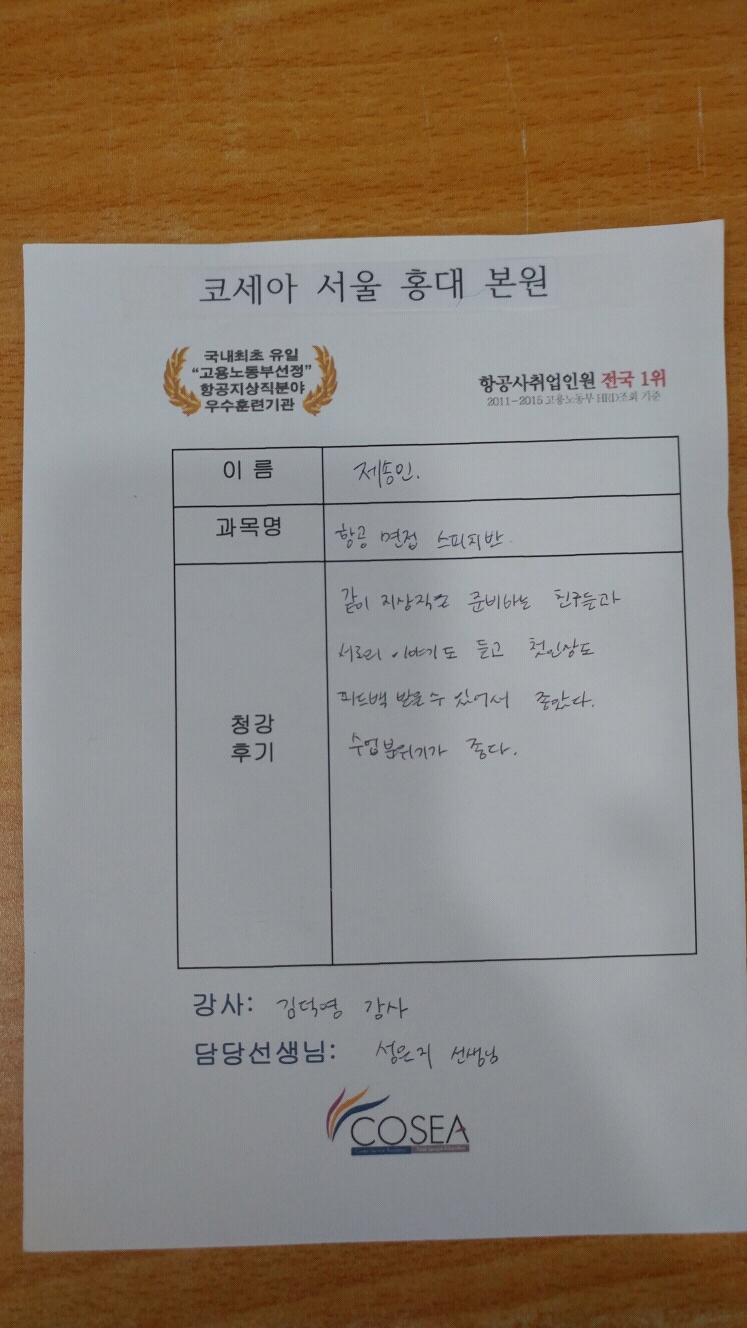 코세아 서울 홍대 본원
국내최초 유일
"고용노동부선정"
항공지상직분야
우수훈련기관
항공사취업인원 전국 1위
2011-2015 고용노동부 HRD조회 기준
이 름
제송인.
과목명
항공 면접 스피치반.
청강
후기
같이 지상직을 준비하는 친구들과
서로의 이야기도 듣고 첫인상도
피드백 받을 수 있어서 좋았다.
수업분위기가 좋다.
강사: 김덕영 강사
담당선생님: 성은지 선생님
COSEA